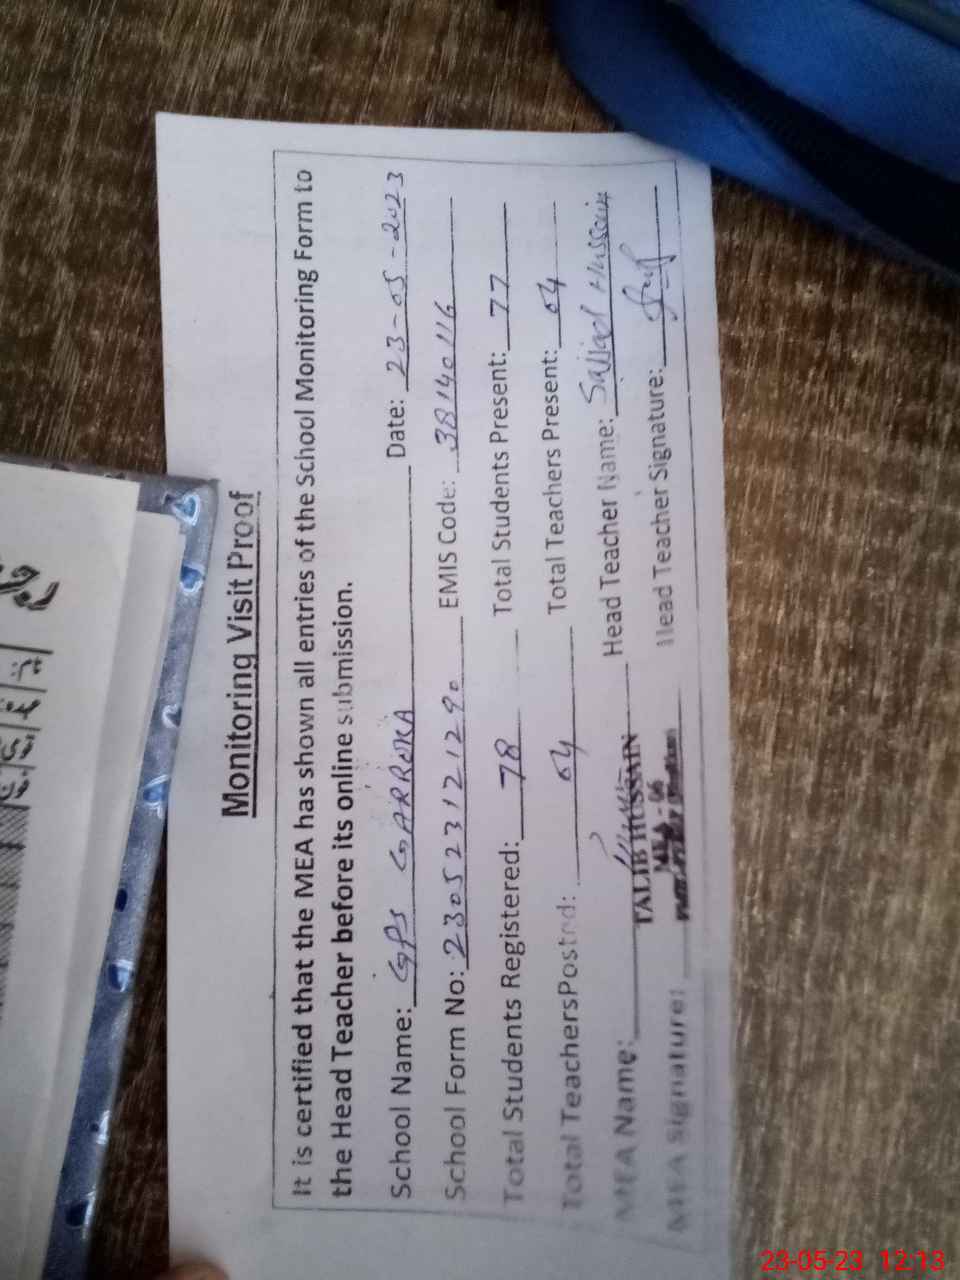 Monitoring Visit Proof
It is certified that the MEA has shown all entries of the School Monitoring Form to
the Head Teacher before its online submission.
School Name: GPS GARROKA Date: 23-05-2023
School Form No: 230523121290 EMIS Code: 38140116
Total Students Registered: 78 Total Students Present: 77
Total Teachers Posted: 04 Total Teachers Present: 04
MEA Name: TALIB HUSSAIN Head Teacher Name: Sajjad Hussain
MEA - 06
MEA Signature: Head Teacher Signature:
23-05-23 12:13